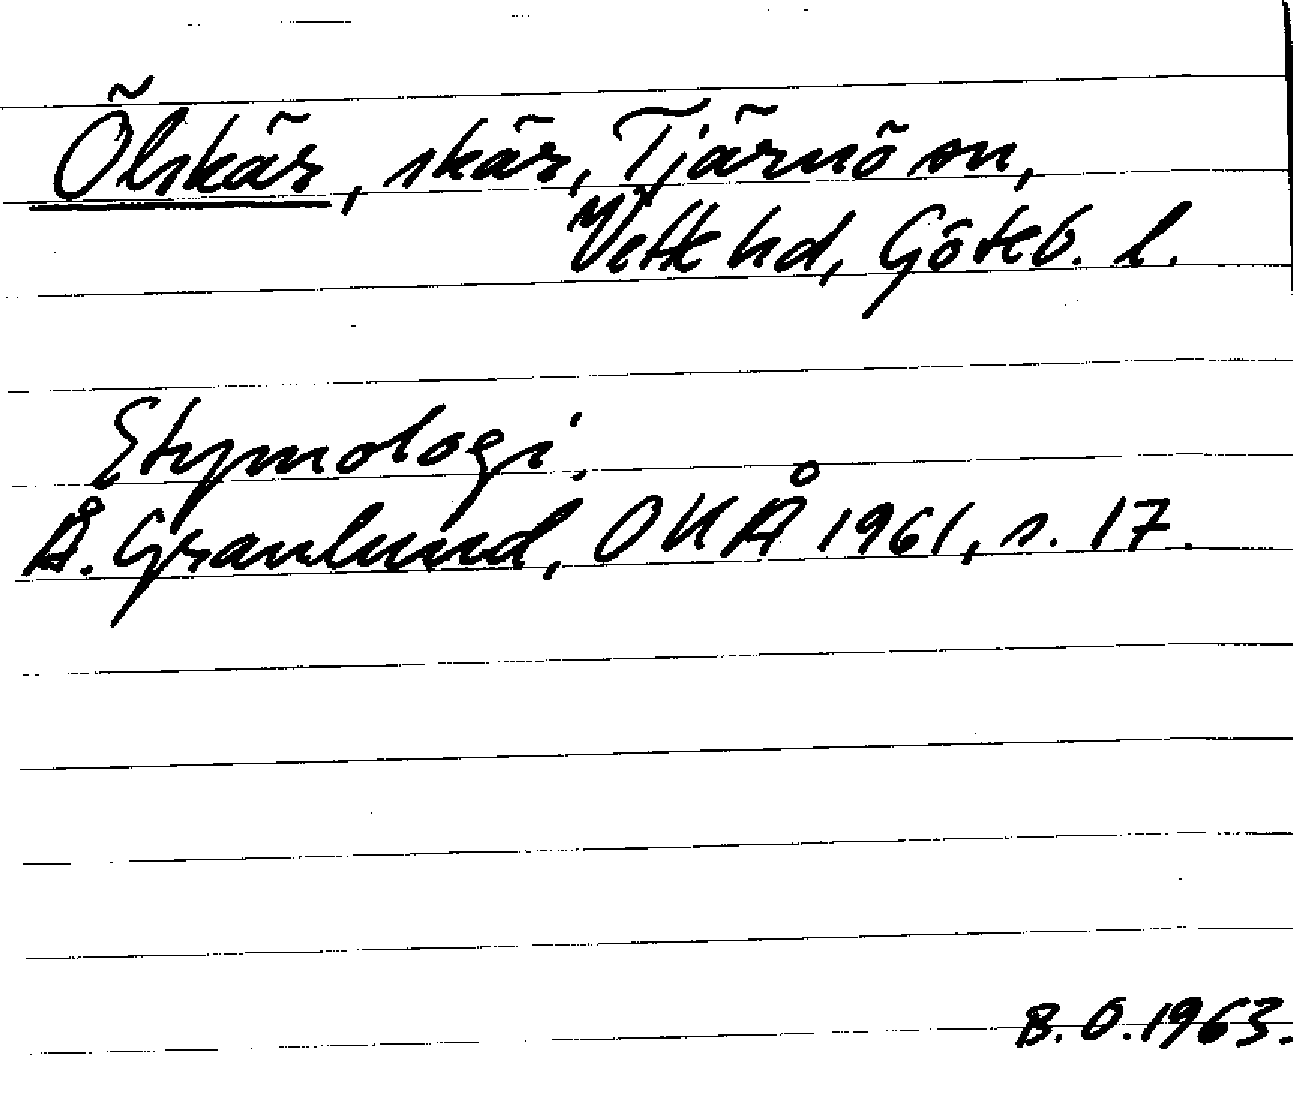 Ölskär, skär, Tjärnö sn,
Vette hd, Göteb. l.
Etymologi.
Å. Granlund, OUÅ 1961, s. 17.
B. O. 1963.